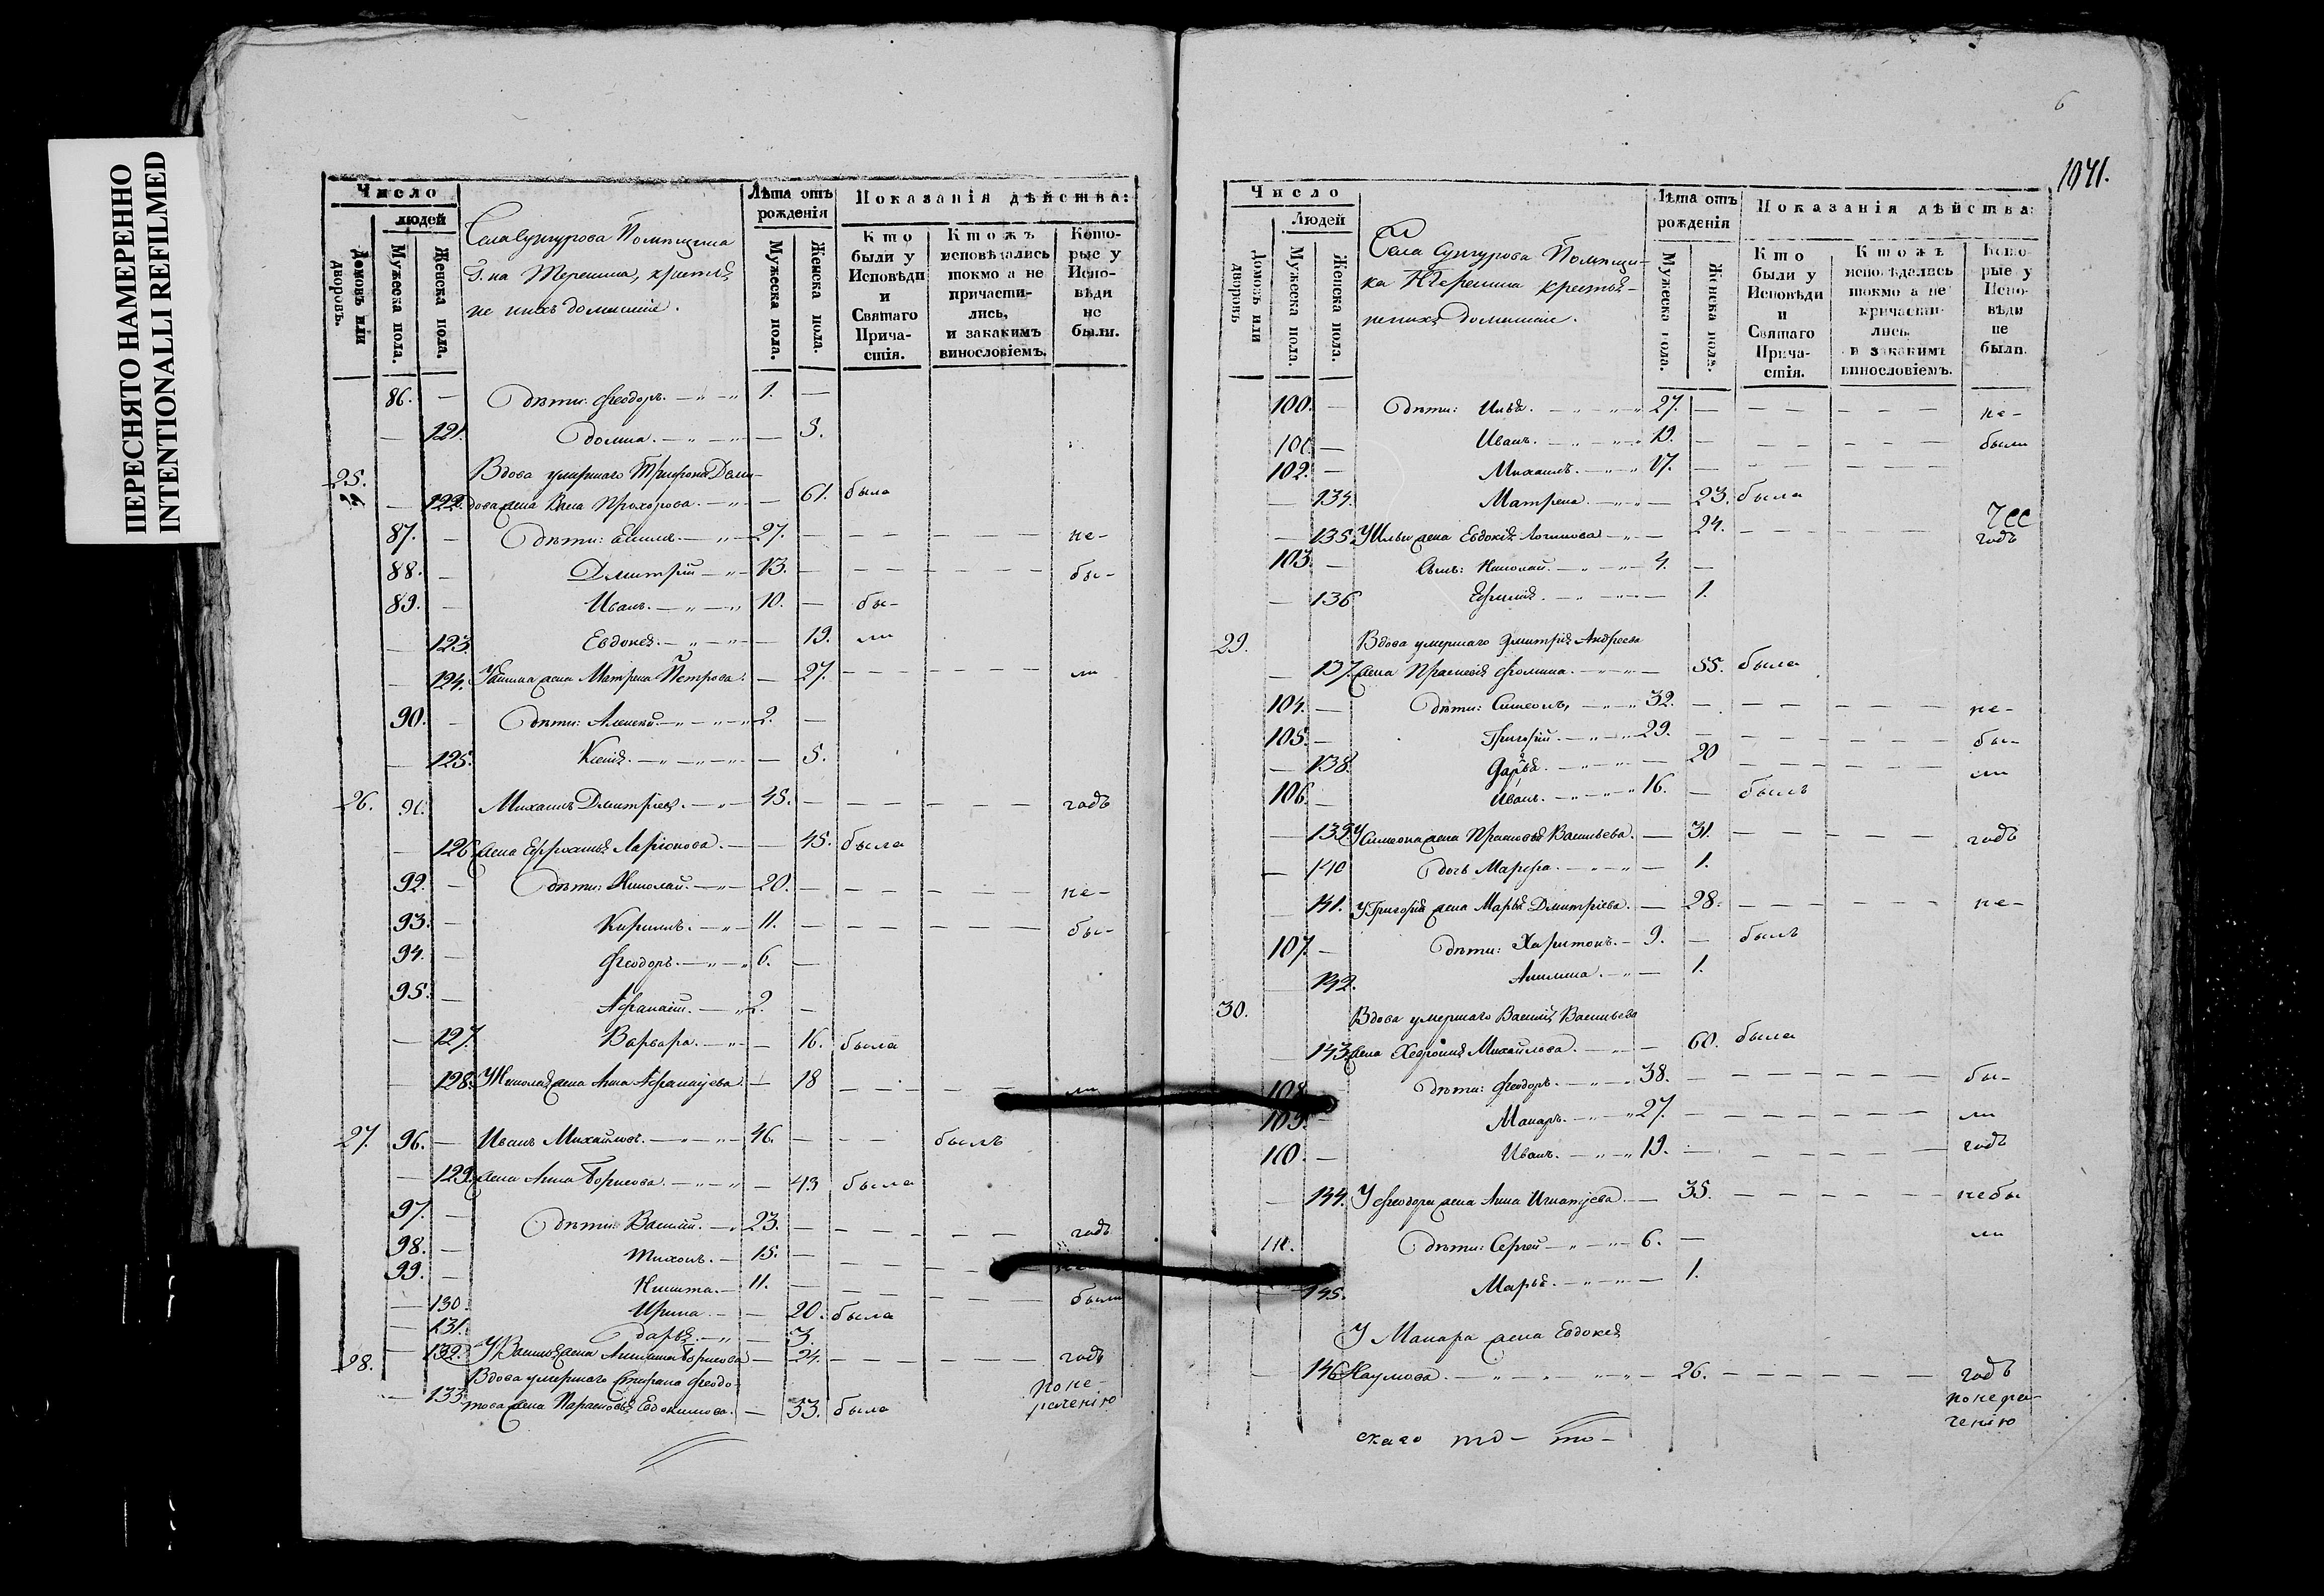 ПЕРЕСНЯТО НАМЕРЕННО
INTENTIONALLI REFILMED
Число
людей
Домовъ или дворовъ.
Мужеска пола.
Женска пола.
Села Сунгурова Помѣщика
Г. на Терешина, крестья
не ихъ домашніе.
Лѣта отъ рожденія
Мужеска пола.
Женска пола.
Показанія дѣйства:
Кто были у Исповѣди и Святаго Причастія.
Ктожъ исповѣдались токмо а не причастились, и закакимъ винословіемъ.
Которые у Исповѣди не были.
86. — Дѣти: Феодоръ. 1. —
— 121. Домна. — 3.
25. Вдова умершаго Трифона Деми-
— 122. дова жена Прохорова. — 61. была
87. — Дѣти: 27. — не-
88. — Дмитрій 13. — бы-
89. — Иванъ. 10. — бы-
— 123. Евдокея. — 19. ли
— 124. жена Матрена Петрова. — 27. ли
90. — Дѣти: Алексей 2. —
— 125. Ксенія. — 5.
26. 91. Михаилъ Дмитріевъ. 45. — годъ
— 126. жена Ларіонова. — 45. была
92. — Дѣти: Николай. 20. — не-
93. — Кирилъ. 11. — бы-
94. — Феодоръ. 6. —
95. — Афанасій. 2. —
— 127. Варвара. — 16. была
— 128. У Николая жена Анна Афанасьева — 18 ли
27. 96. — Иванъ Михайловъ. 46. — былъ
— 129. жена Анна Борисова. — 43 была
97. — Дѣти: Василій. 23. — годъ
98. — Тихонъ. 15. — не
99. — Никита. 11. — были
— 130. Ирина. — 20. была
— 131. Дарья. — 3.
— 132. У Василья жена Борисова — 24. годъ
28. Вдова умершаго Стефана Феодо-
— 133. това жена Парасковья Евдокимова. — 33. была
по не-
рачению
6
1041.
Число
Людей
Домовъ или дворовъ
Мужеска пола.
Женска пола.
Села Сунгурова Помѣщи-
ка Терешина крестья-
не ихъ домашніе.
Лѣта отъ рожденія
Мужеска пола.
Женска пола.
Показанія дѣйства:
Кто были у Исповѣди и Святаго Причастія.
Ктожъ исповѣдались токмо а не причастились и закакимъ винословіемъ.
Которые у Исповѣди не были.
100. — Дѣти: Илья. 27. — не-
101. — Иванъ. 19. — были
102. — Михаилъ. 17. —
— 134. Матрена. — 23. была
— 135. У Ильи жена Евдокія Логинова — 24. — годъ
103. — Сынъ: Николай. 4. —
— 136 — 1.
29. Вдова умершаго Дмитрія Андреева
— 137. жена Фомина. — 55. была
104. — Дѣти: Симеонъ, 32. — не-
105. — Григорій. 29. — бы-
— 138. Дарья. — 20 ли
106. — Иванъ. 16. — былъ
— 139. У Симеона жена Васильева. — 31. годъ
— 140 дочь Марфа. — 1.
— 141. У Григорія жена Марья Дмитріева. — 28. не-
107. — Дѣти: Харитонъ. 9. — былъ
— 142. Акилина. — 1.
30. Вдова умершаго Василія Васильева
— 143. жена Михайлова. — 60. была
108. Дѣти: Феодоръ. 38. — бы-
109. — Макаръ. 27. — ли
110. — Иванъ. 19. — годъ
— 144. У Феодора жена Анна Игнатьева — 35. небы
111. Дѣти: Сергей 6. — ли
145. Марья. — 1.
У Макара жена Евдокея
— 146 Наумова. — 26. — годъ
по нера-
чению
скаго то- то-